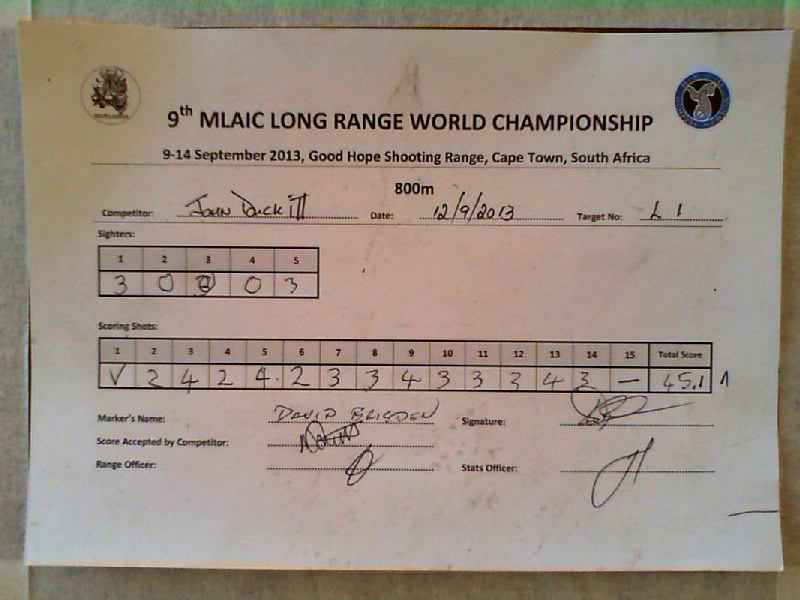 SOUTH AFRICA
9th MLAIC LONG RANGE WORLD CHAMPIONSHIP
9-14 September 2013, Good Hope Shooting Range, Cape Town, South Africa
800m
Competitor: John Duckitt Date: 12/9/2013 Target No: L 1
Sighters:
1 2 3 4 5
3 0 0 3
Scoring Shots:
1 2 3 4 5 6 7 8 9 10 11 12 13 14 15 Total Score
V 2 4 2 4 2 3 3 4 3 3 3 4 3 — 45.1
Marker's Name: DAVID Signature:
Score Accepted by Competitor:
Range Officer: Stats Officer: